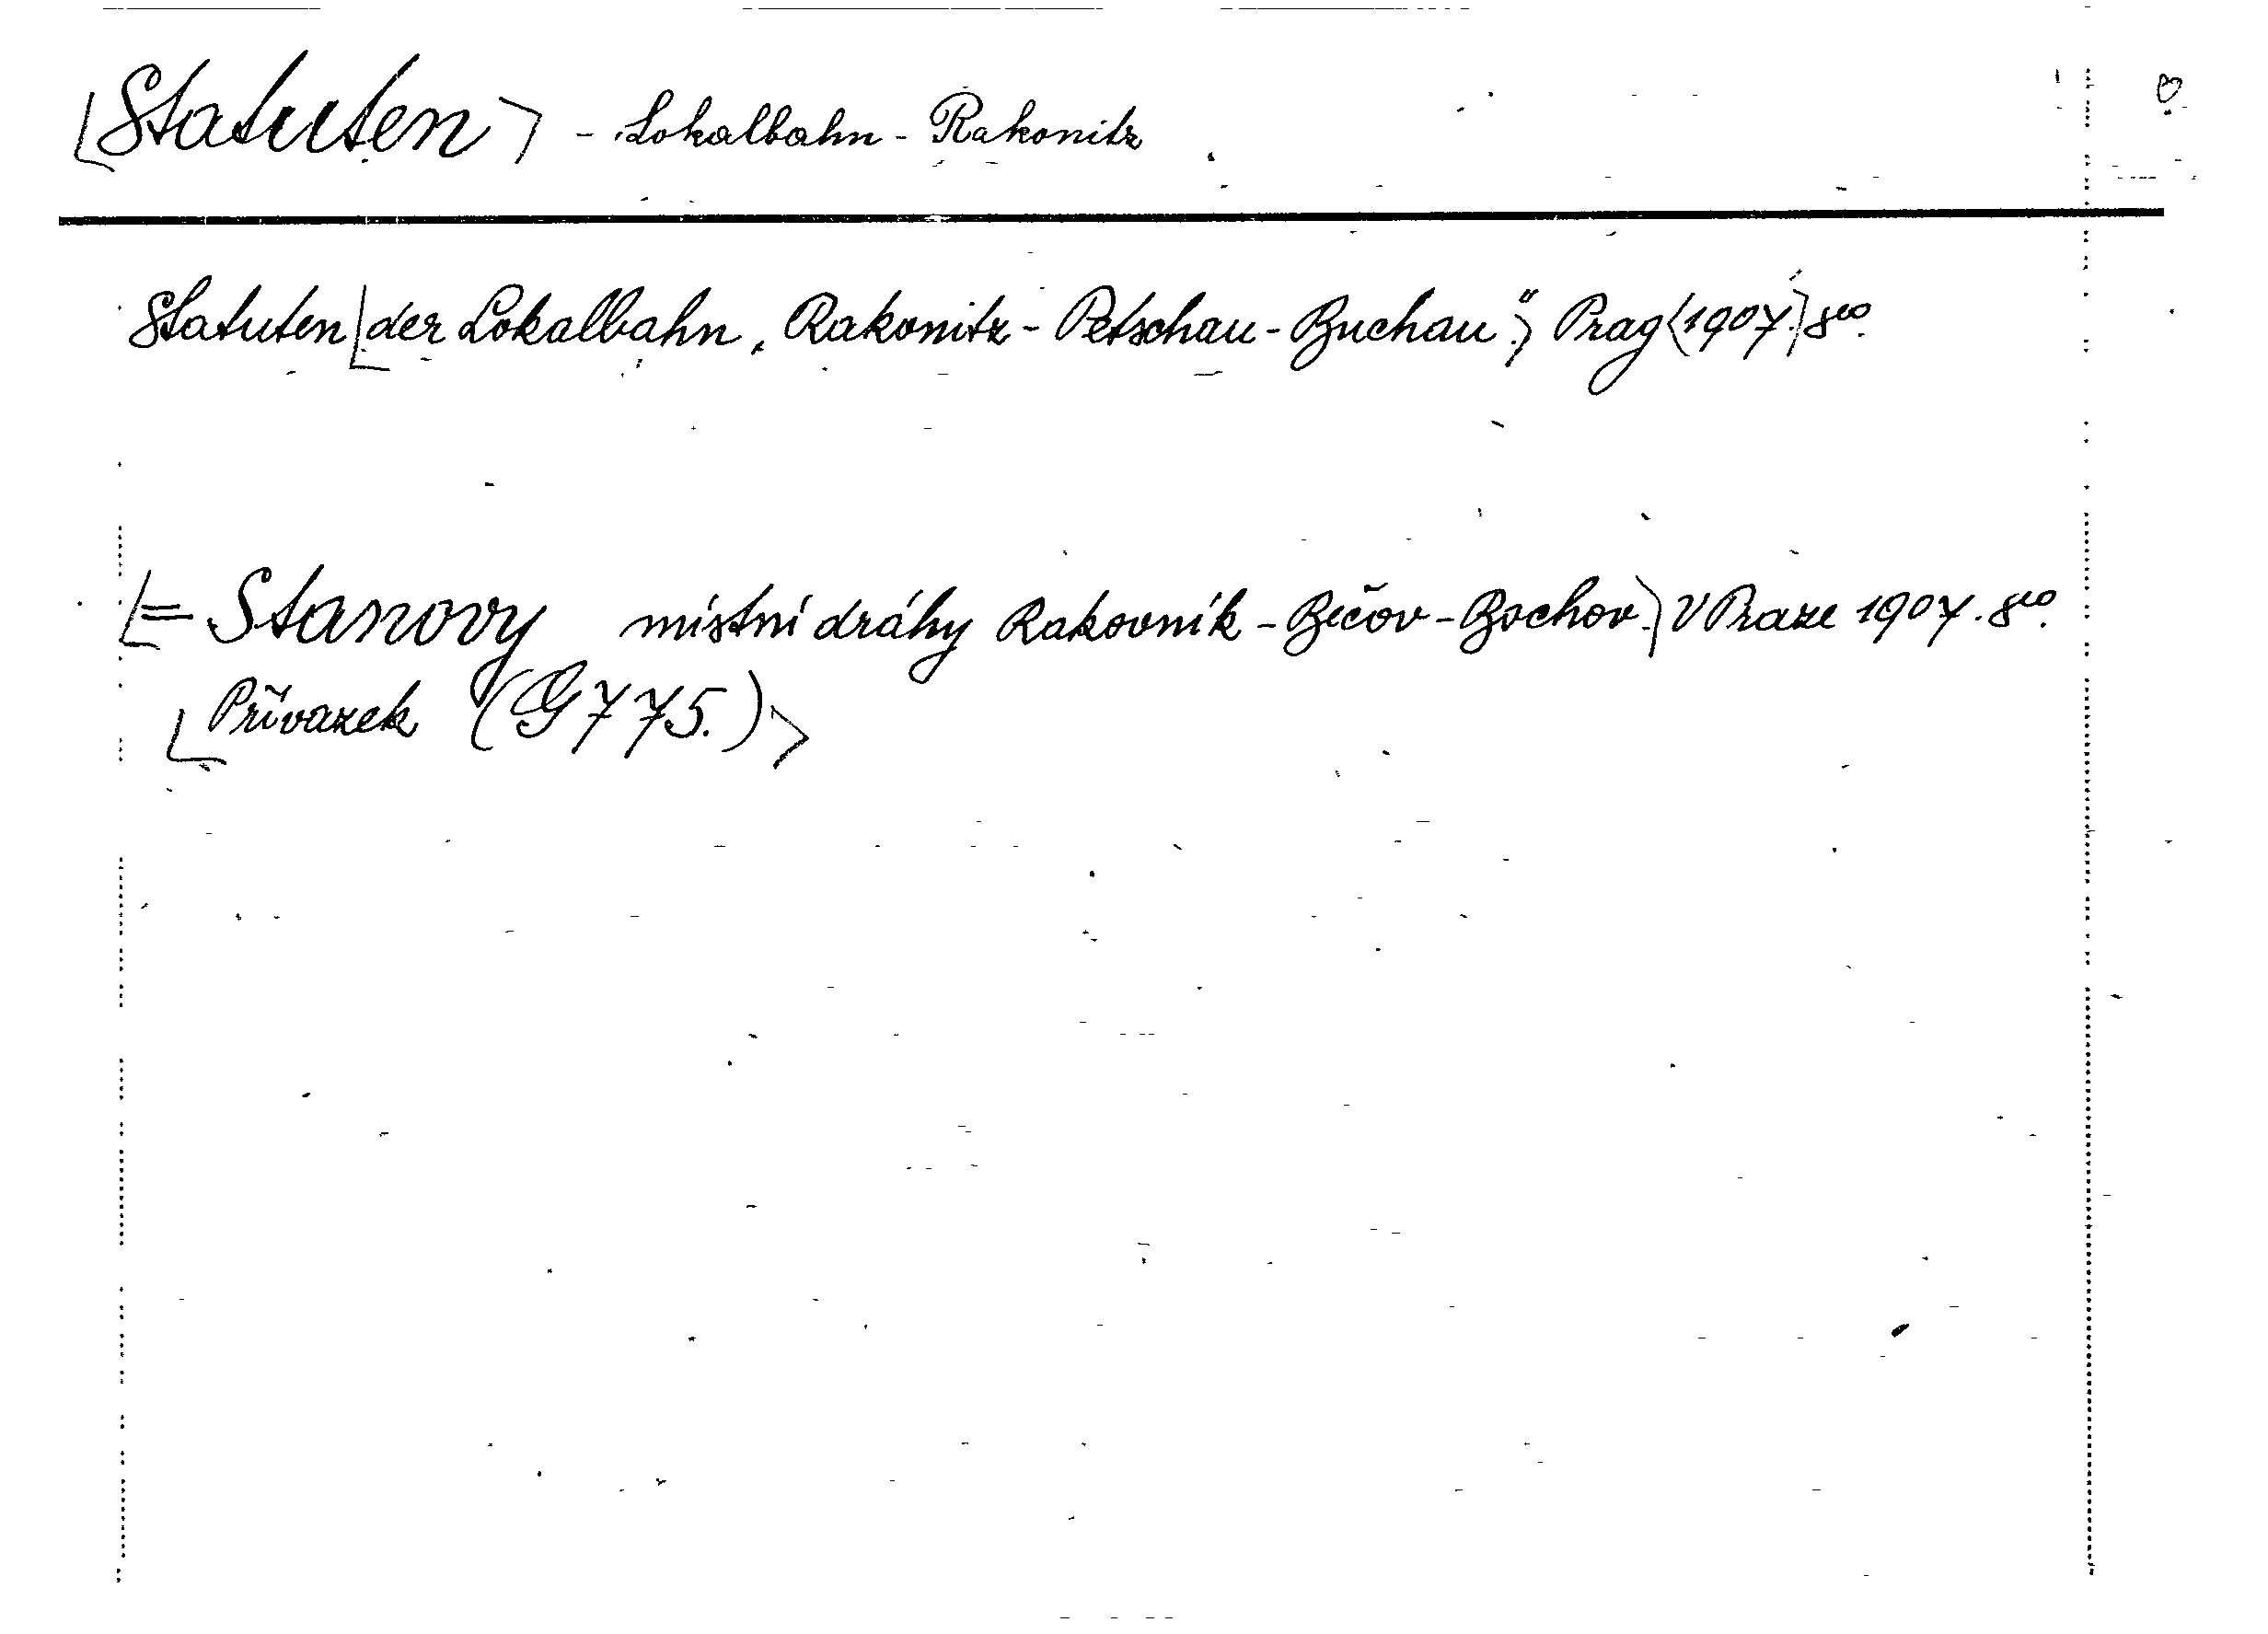 [Statuten] - Lokalbahn - Rakonitz
Statuten [der Lokalbahn „Rakonitz - Petschau - Buchau“] Prag [1907.] 8ᵛᵒ.
[= Stanovy místní dráhy Rakovník - Bečov - Bochov.] V Praze 1907. 8ᵛᵒ.
[Přívazek (G 775.)]